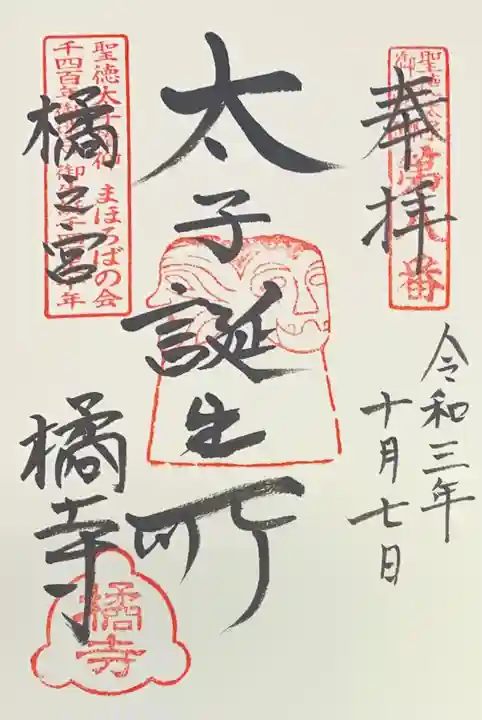 奉拝
令和三年
十月七日
太子誕生所
橘之宮
橘寺
聖徳太子
番
聖徳太子
まほろばの会
千四百年御
年
橘寺